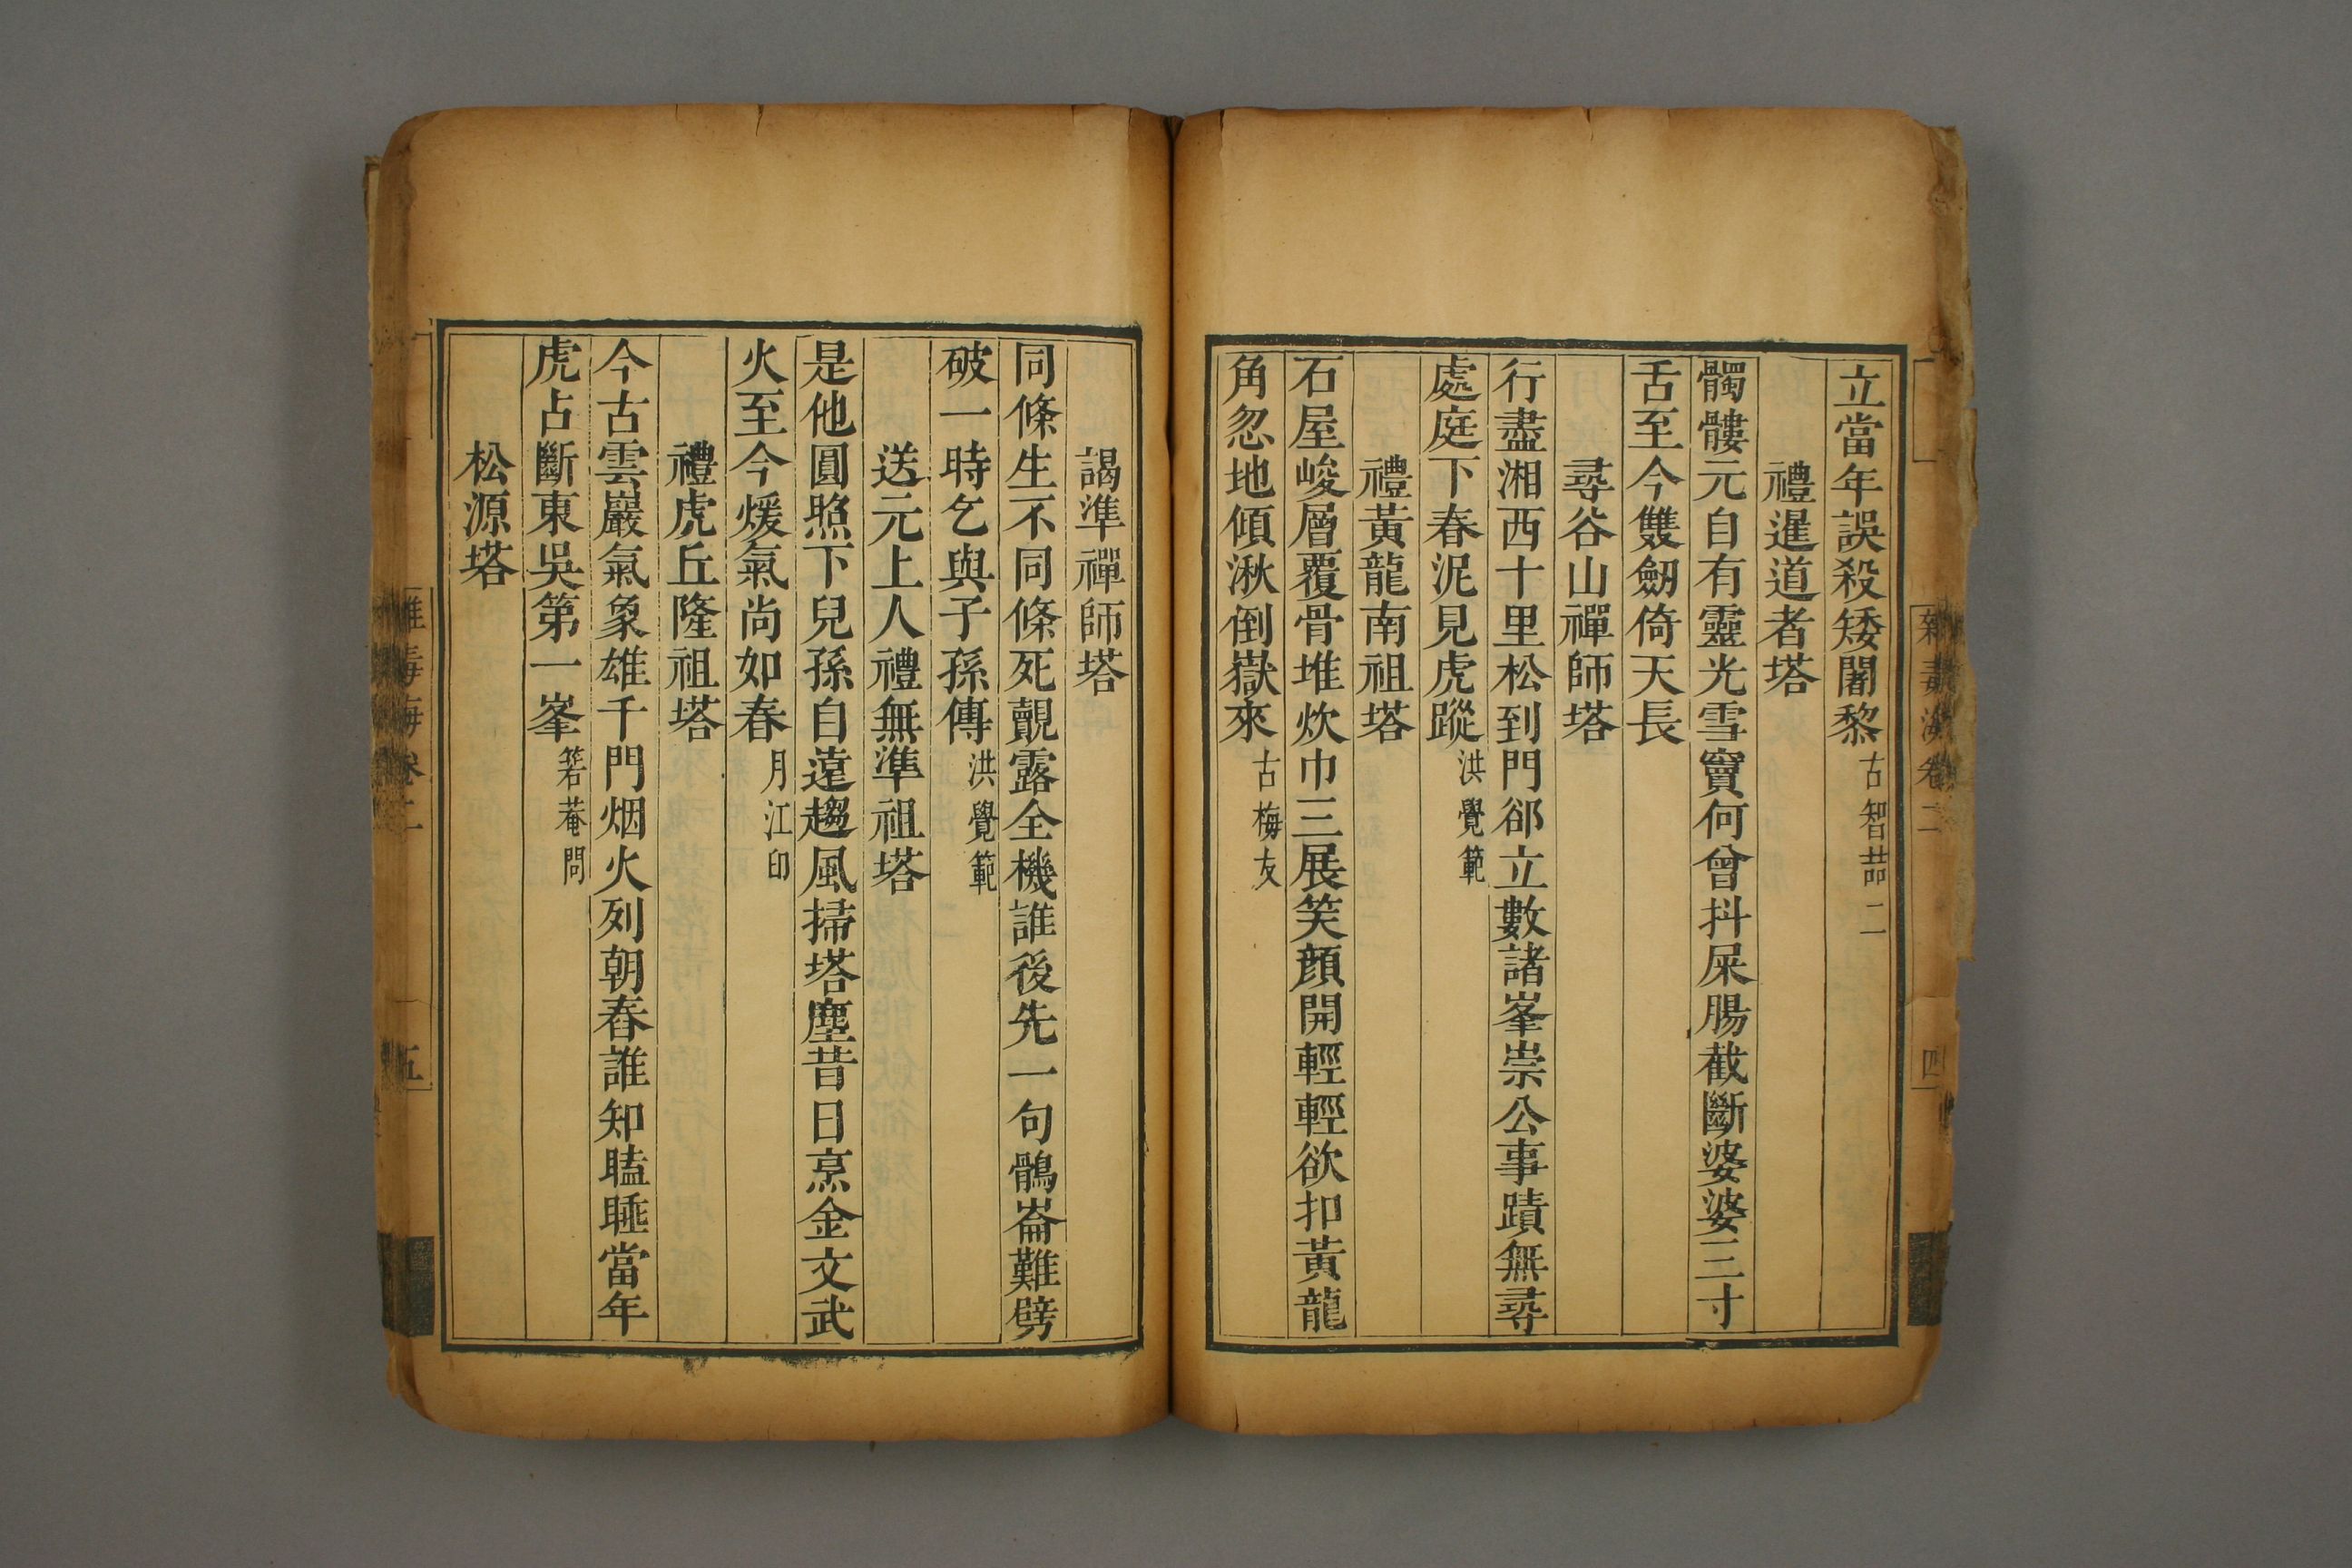 立當年誤殺矮闍黎古智喆二
禮暹道者塔
髑髏元自有靈光雪竇何曾抖屎腸截斷婆婆三寸
舌至今雙劒倚天長
尋谷山禪師塔
行盡湘西十里松到門郤立數諸峯崇公事蹟無尋
處庭下春泥見虎蹤洪覺範
禮黃龍南祖塔
石屋峻層覆骨堆炊巾三展笑顏開輕輕欲扣黃龍
角忽地傾湫倒嶽來古梅友
謁準禪師塔
同條生不同條死覿露全機誰後先一句鶻崙難劈
破一時乞與子孫傳洪覺範
送元上人禮無準祖塔
是他圓照下兒孫自遠趨風掃塔塵昔日烹金文武
火至今煖氣尚如春月江印
禮虎丘隆祖塔
今古雲巖氣象雄千門烟火列朝春誰知瞌睡當年
虎占斷東吳第一峯箬菴問
松源塔
雜毒海卷二
五
雜毒海卷二
四